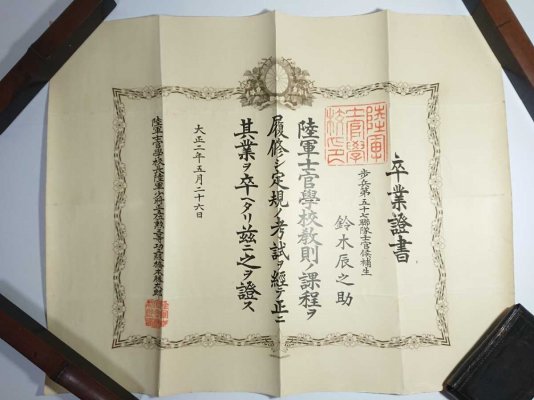 卒業證書
歩兵第五十七聯隊士官候補生
鈴木辰之助
陸軍士官學校教則ノ課程ヲ
履修シ定規ノ考試ヲ經テ正ニ
其業ヲ卒ヘタリ茲ニ之ヲ證ス
大正二年五月二十六日
陸軍士官學校長陸軍少將
陸軍士官學校印